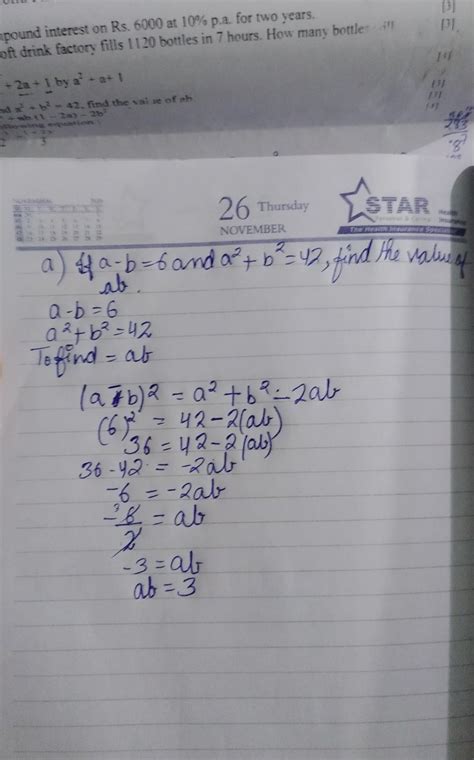 pound interest on Rs. 6000 at 10% p.a. for two years. [3]
oft drink factory fills 1120 bottles in 7 hours. How many bottle [3]
+ 2a + 1 by a² + a + 1
nd a² + b² = 42, find the value of ab
+ ab (1 - 2a) - 2b²
NOVEMBER
26 Thursday
NOVEMBER
STAR Health Insurance
The Health Insurance Specialist
a) If a-b=6 and a²+b²=42, find the value of
ab.
a-b=6
a²+b²=42
To find = ab
(a-b)² = a²+b²-2ab
(6)² = 42-2(ab)
36 = 42-2(ab)
36-42 = -2ab
-6 = -2ab
-6/2 = ab
3
-3 = ab
ab = 3